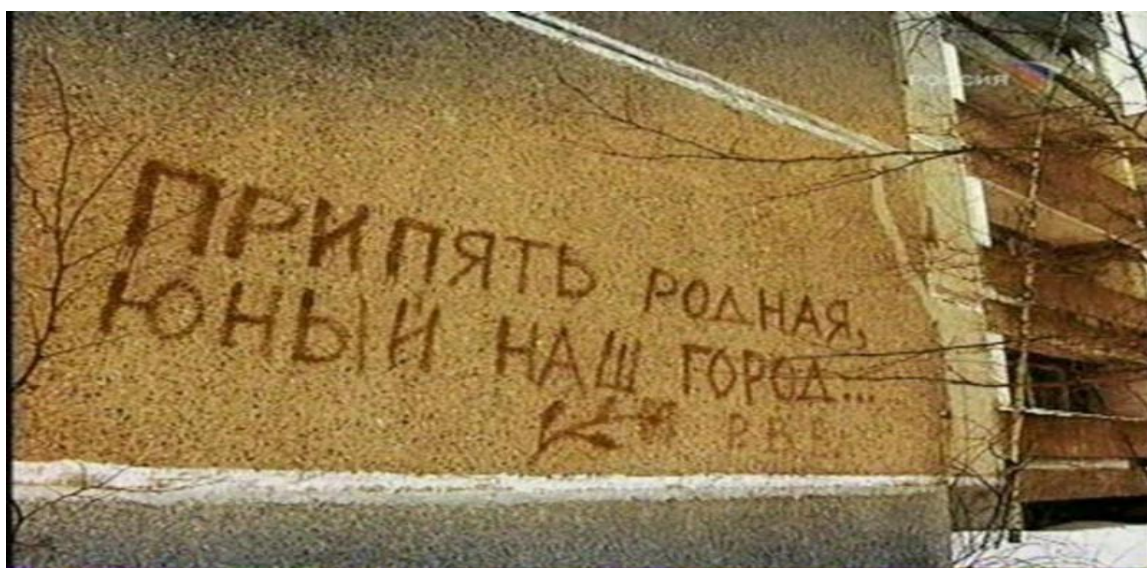 РОССИЯ
ПРИПЯТЬ РОДНАЯ,
ЮНЫЙ НАШ ГОРОД...